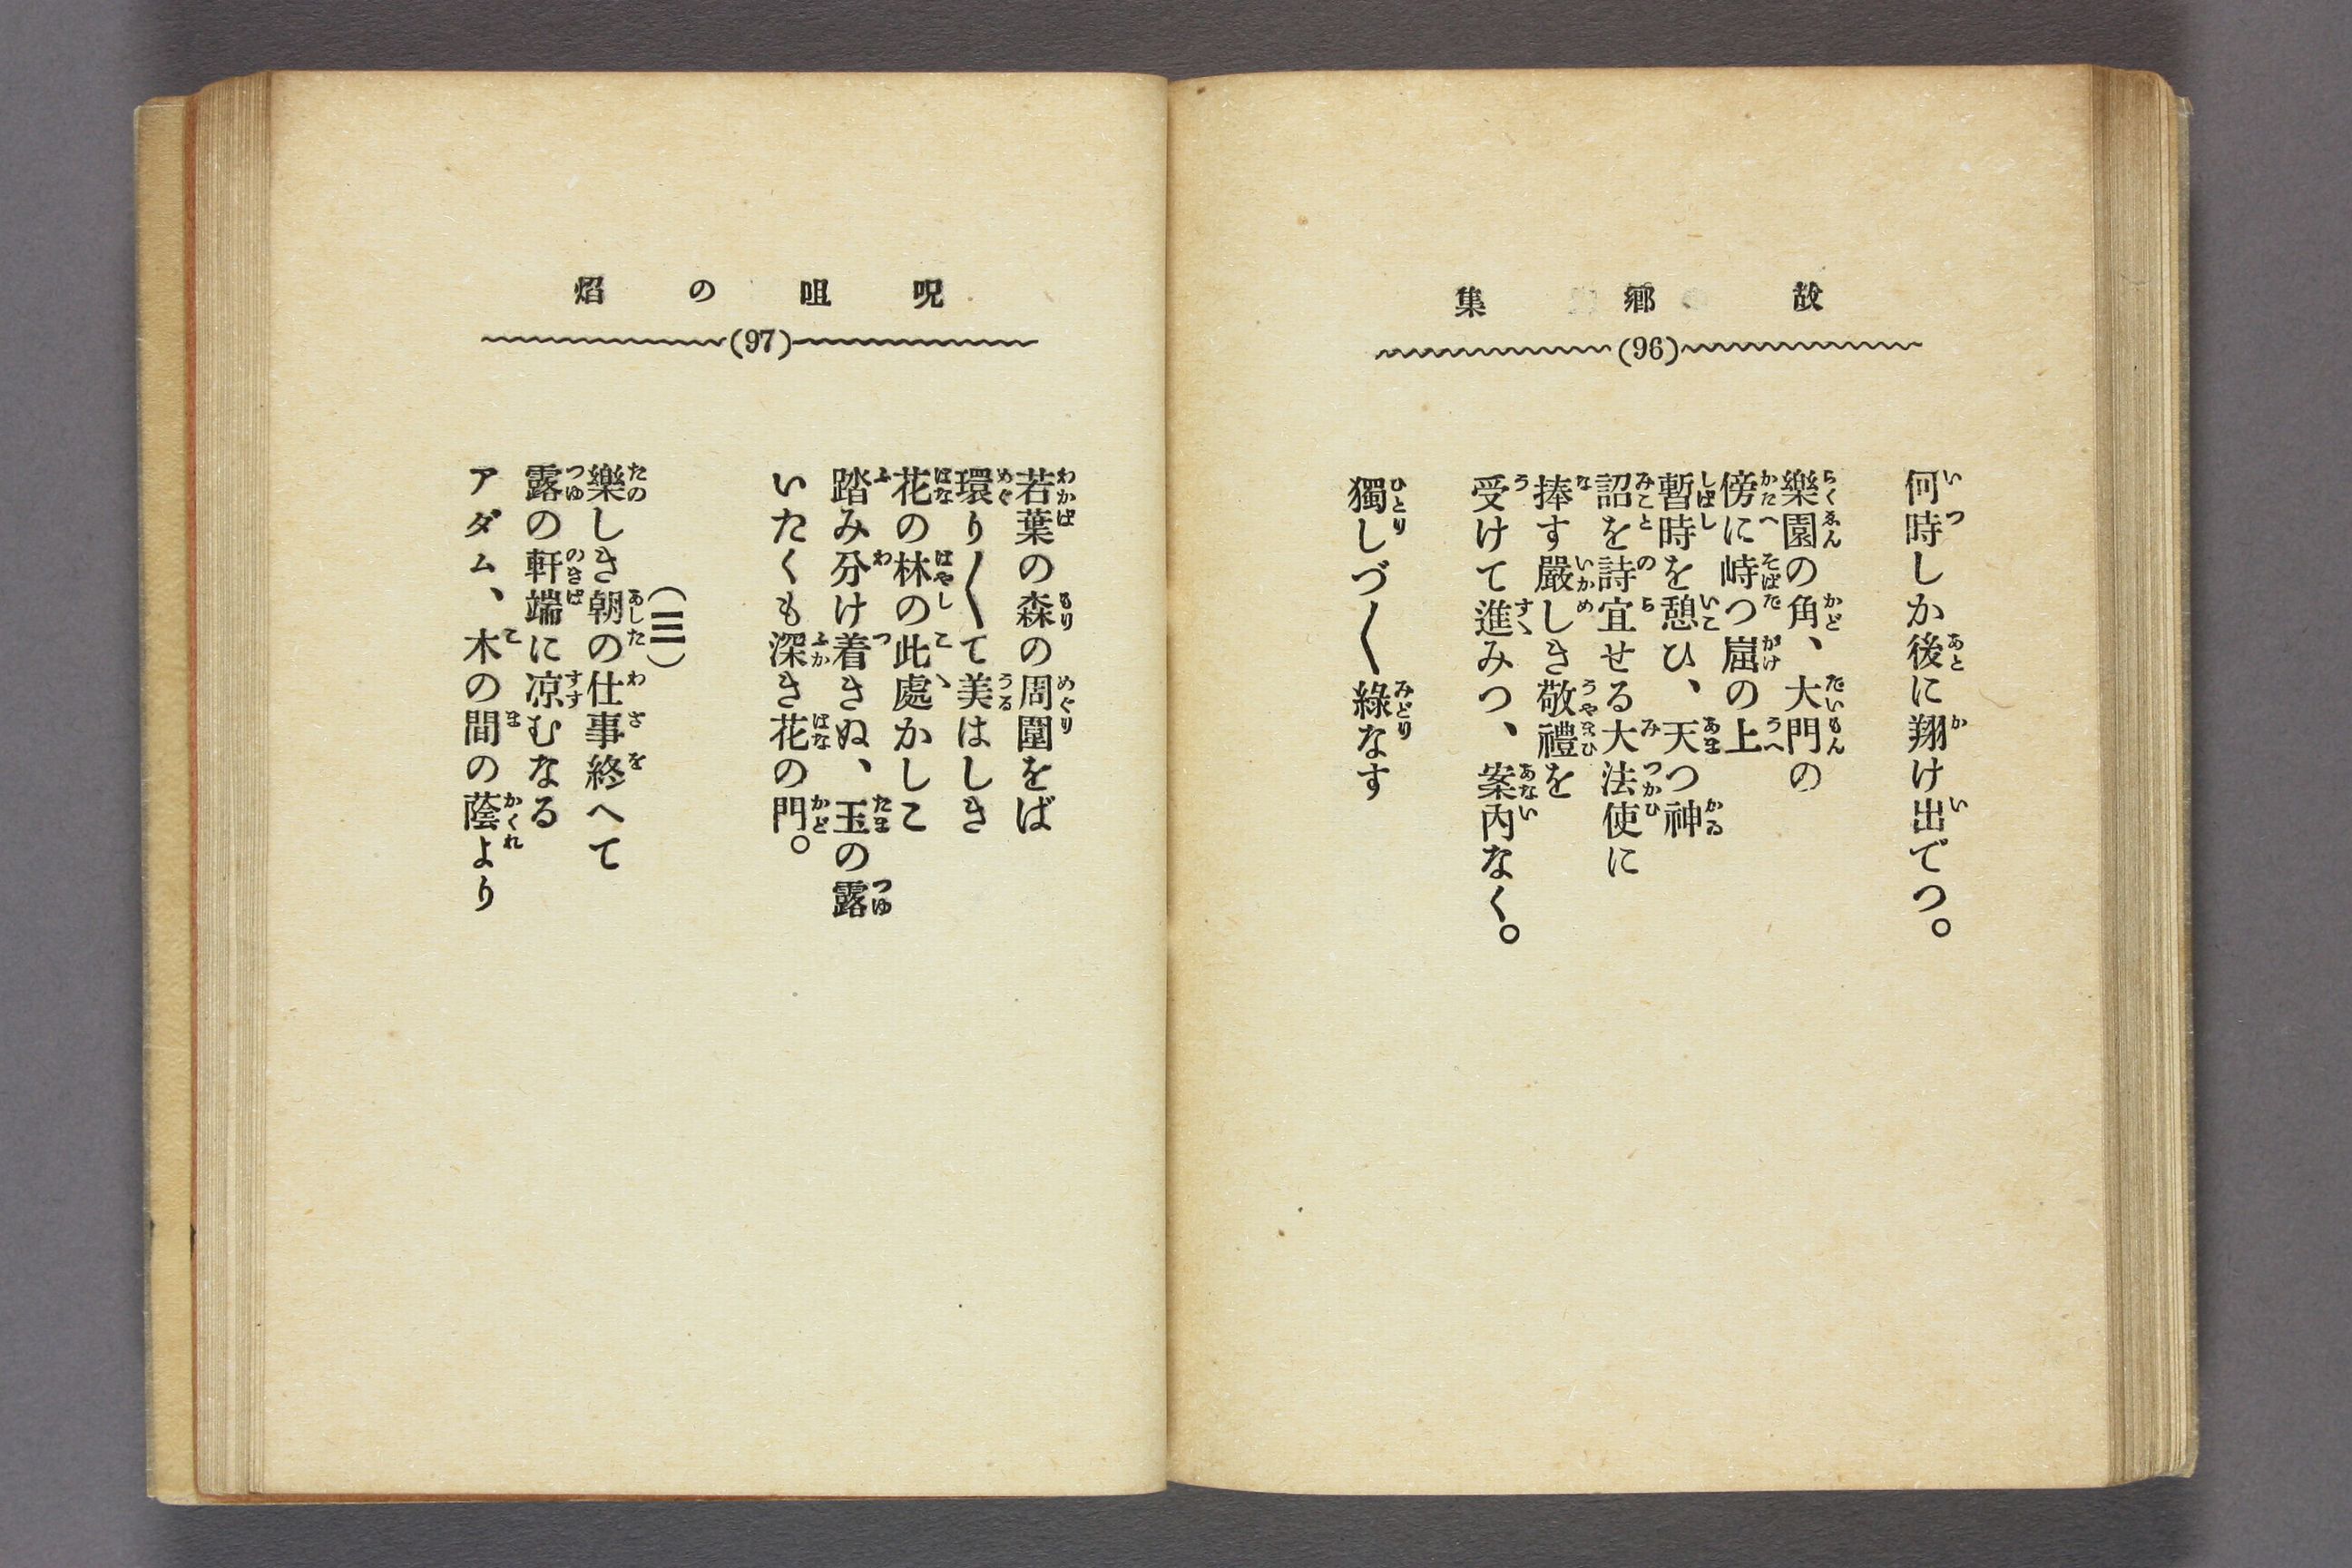 故鄕集
(96)
何時しか後に翔け出でつ。
樂園の角、大門の
傍に峙つ崫の上
暫時を憩ひ、天つ神
詔を詩宜せる大法使に
捧す嚴しき敬禮を
受けて進みつ、案內なく。
獨しづ〱綠なす
呪咀の焰
(97)
若葉の森の周圍をば
環り〱て美はしき
花の林の此處かしこ
踏み分け着きぬ、玉の露
いたくも深き花の門。
(三)
樂しき朝の仕事終へて
露の軒端に凉むなる
アダム、木の間の蔭より